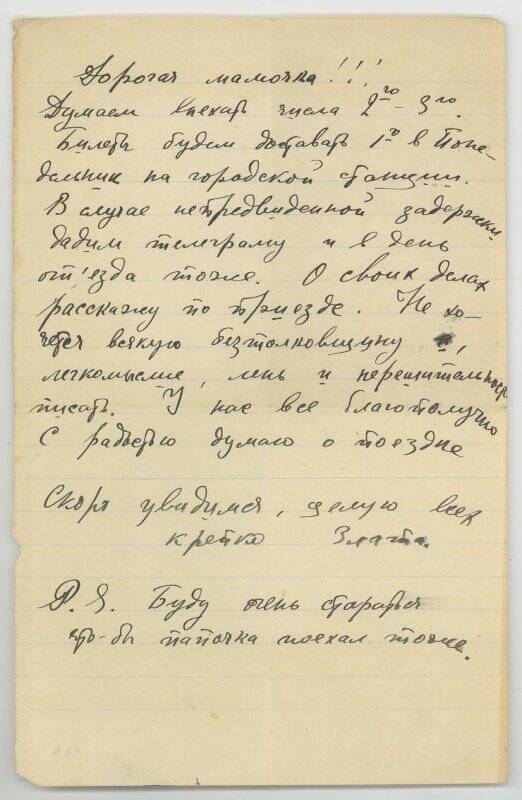 Дорогая мамочка!!!
Думаем выехать числа 2го – 3го.
Билеты будем доставать 1го в Поне-
дельник на городской станции.
В случае непредвиденной задержки
дадим телеграму и в день
от'езда тоже. О своих делах
расскажу по приезде. Не хо-
чется всякую безтолковщину,
легкомыслие, лень и нерешительность
писать. У нас все благополучно
С радостью думаю о поездке
Скоро увидимся, целую всех
крепко Злата.
P. S. Буду очень стараться
что-бы папочка поехал тоже.